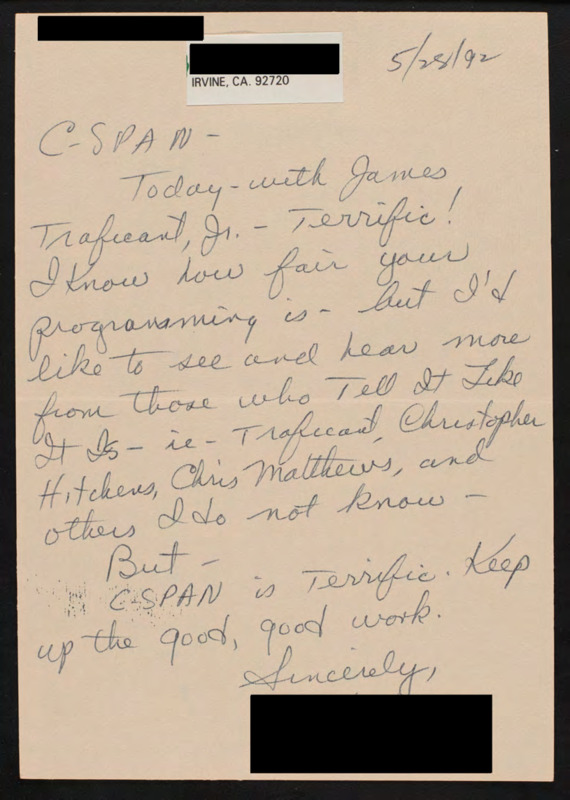 IRVINE, CA. 92720
5/28/92
C-SPAN -
Today - with James
Traficant, Jr. - Terrific!
I know how fair your
programming is - but I'd
like to see and hear more
from those who Tell It Like
It Is - ie - Traficant, Christopher
Hitchens, Chris Matthews, and
others I do not know -
But -
C-SPAN is Terrific. Keep
up the good, good work.
Sincerely,